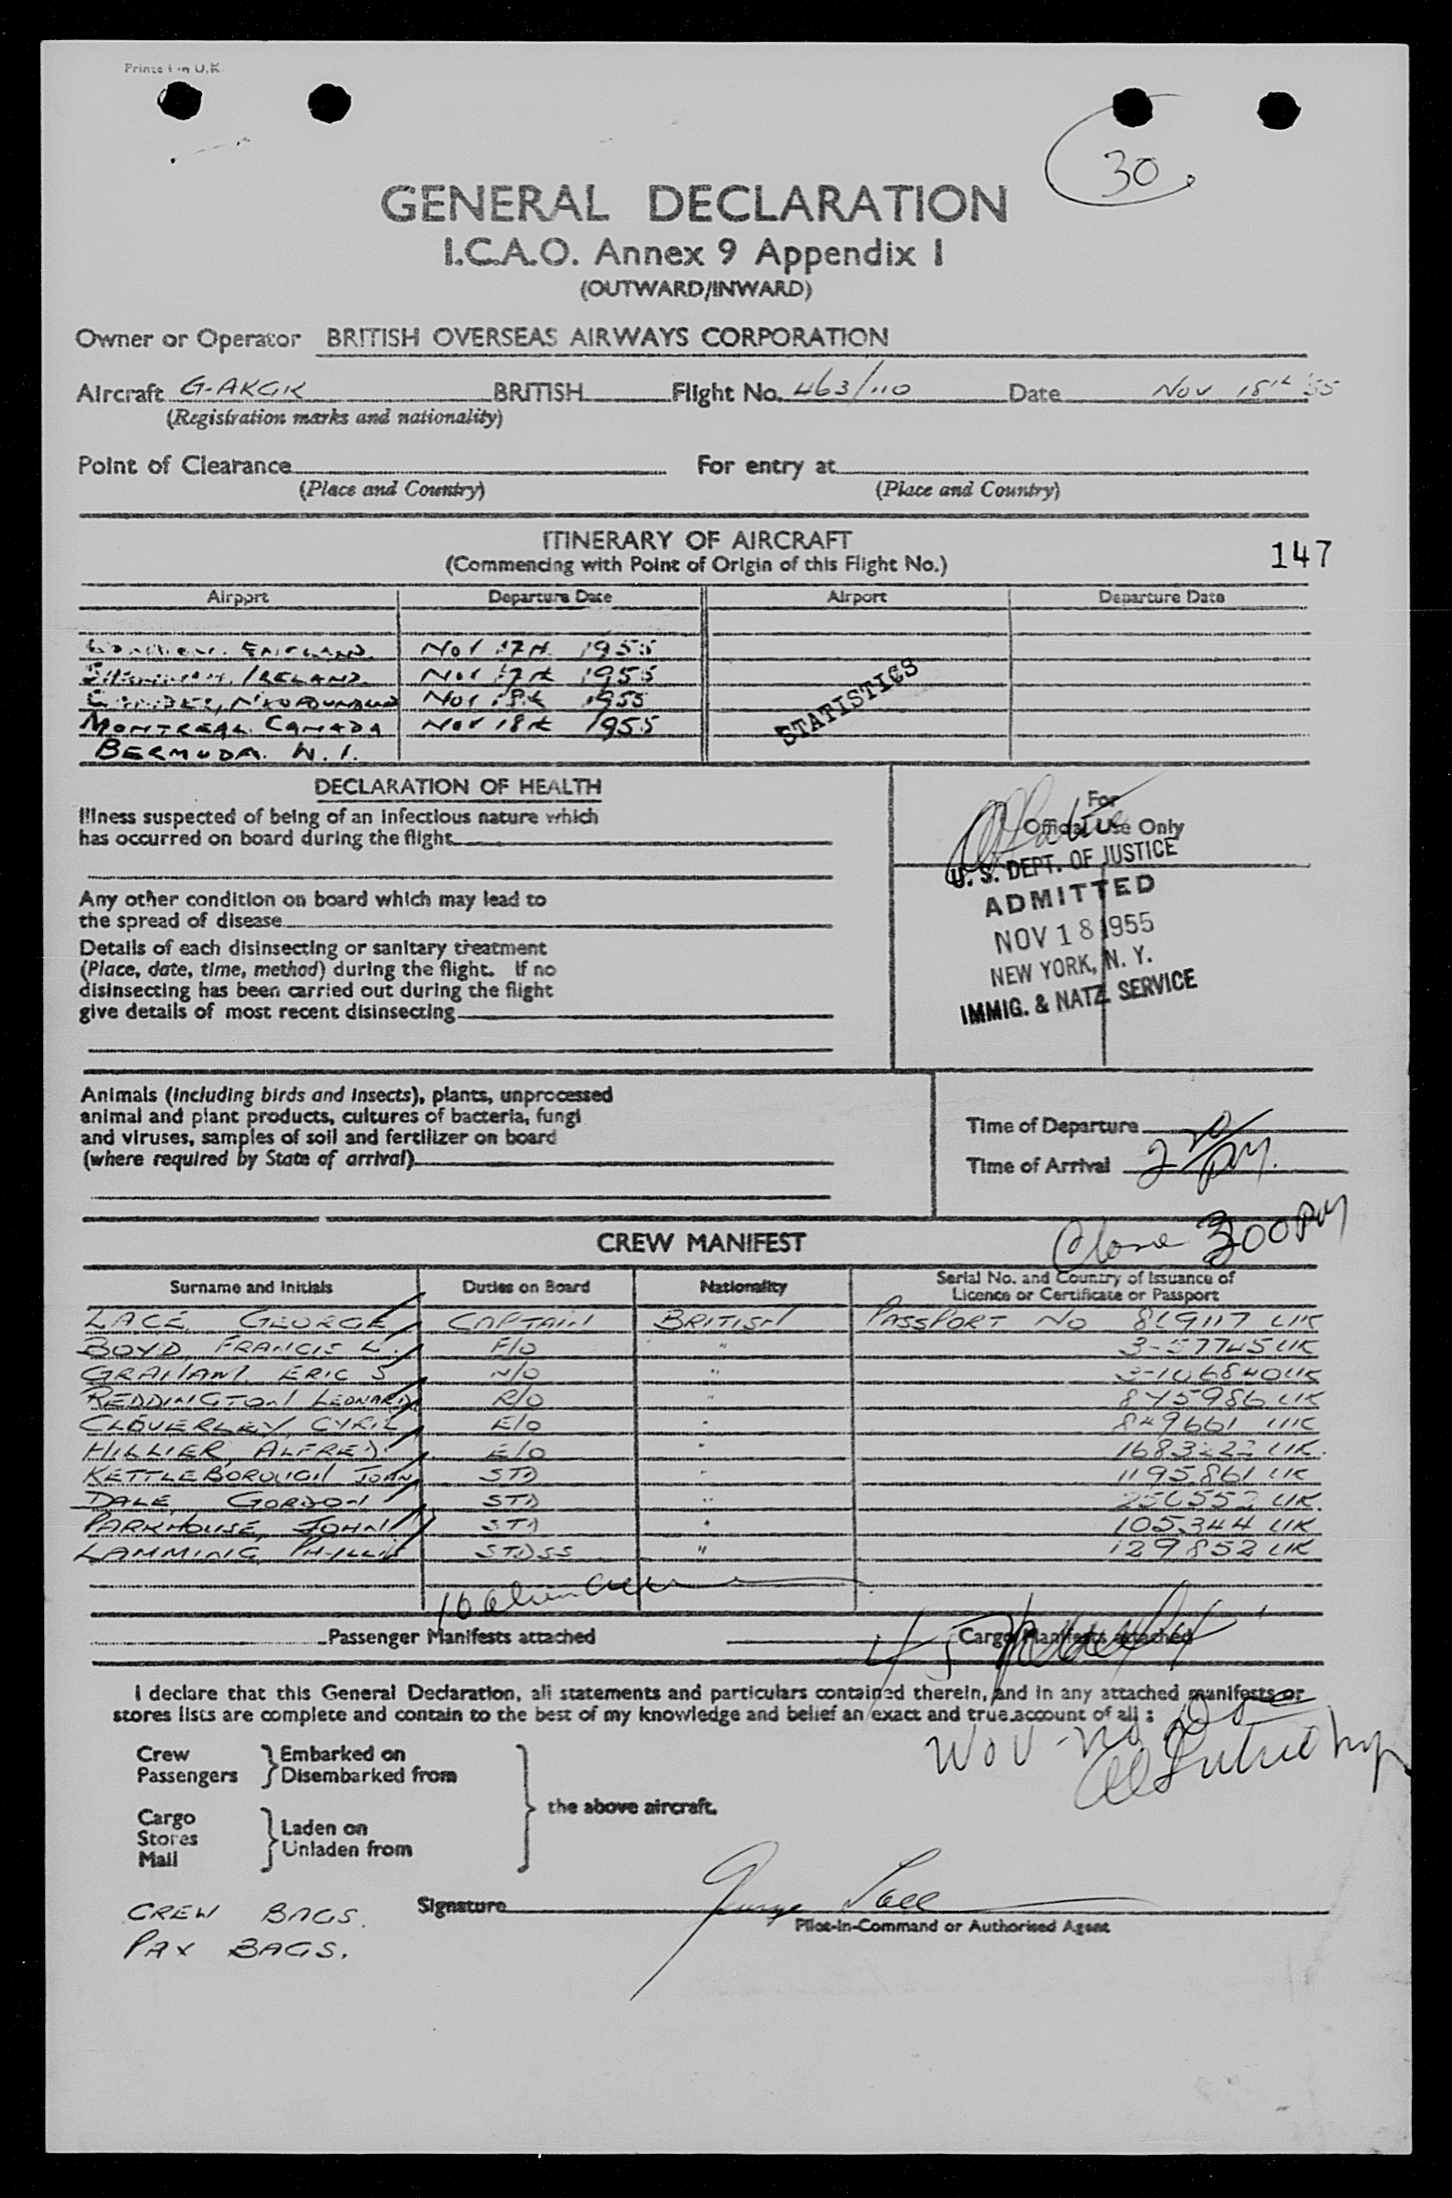 Printed in U.K.
30
GENERAL DECLARATION
I.C.A.O. Annex 9 Appendix I
(OUTWARD/INWARD)
Owner or Operator BRITISH OVERSEAS AIRWAYS CORPORATION
Aircraft G-AKGK BRITISH Flight No. 463/110 Date Nov 18th '55
(Registration marks and nationality)
Point of Clearance For entry at
(Place and Country) (Place and Country)
ITINERARY OF AIRCRAFT
(Commencing with Point of Origin of this Flight No.)
147
Airport Departure Date Airport Departure Date
LONDON. ENGLAND. NOV 17th 1955
SHANNON. IRELAND. NOV 17th 1955
GANDER, NEWFOUNDLAND NOV 18th 1955
MONTREAL CANADA NOV 18th 1955
BERMUDA. W. I.
STATISTICS
DECLARATION OF HEALTH
Illness suspected of being of an infectious nature which
has occurred on board during the flight
Any other condition on board which may lead to
the spread of disease
Details of each disinsecting or sanitary treatment
(Place, date, time, method) during the flight. If no
disinsecting has been carried out during the flight
give details of most recent disinsecting
For
Official Use Only
U. S. DEPT. OF JUSTICE
ADMITTED
NOV 18 1955
NEW YORK, N. Y.
IMMIG. & NATZ. SERVICE
Animals (including birds and insects), plants, unprocessed
animal and plant products, cultures of bacteria, fungi
and viruses, samples of soil and fertilizer on board
(where required by State of arrival)
Time of Departure
Time of Arrival 2 20 PM.
Close 300 PM
CREW MANIFEST
Surname and Initials Duties on Board Nationality Serial No. and Country of Issuance of
Licence or Certificate or Passport
LACE, GEORGE CAPTAIN BRITISH PASSPORT No 819117 UK
BOYD, FRANCIS L. F/O " 3-57745 UK
GRAHAM, ERIC S N/O " UK
REDDINGTON LEONARD R/O " 875986 UK
CLOVERLEY, CYRIL E/O " 849661 UK
HILLIER, ALFRED E/O " UK.
KETTLEBOROUGH JOHN STD " 1195861 UK
DALE, GORDON STD " UK.
PARKHOUSE, JOHN STD " 105344 UK
LAMMING, PHYLLIS STDSS " 129852 UK
10 alien crew
Passenger Manifests attached Cargo Manifests attached
45
I declare that this General Declaration, all statements and particulars contained therein, and in any attached manifests or
stores lists are complete and contain to the best of my knowledge and belief an exact and true account of all :
Crew Embarked on
Passengers Disembarked from
the above aircraft.
Cargo
Stores Laden on
Mail Unladen from
CREW BAGS.
PAX BAGS.
Signature George Lace
Pilot-in-Command or Authorised Agent